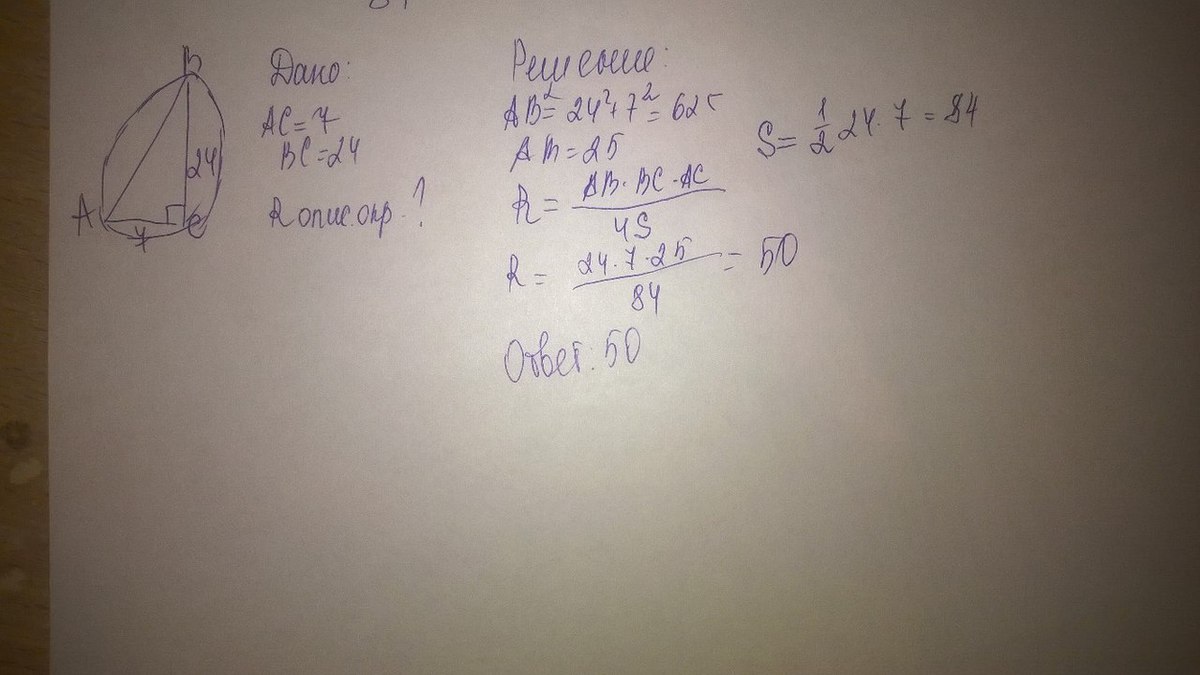 B
24
A
C
7
Дано:
AC=7
BC=24
R опис.окр. ?
Решение:
AB²=24²+7²=625
AB=25
R= AB·BC·AC
4S
R= 24·7·25 = 50
84
Ответ: 50
S= 1/2 24·7=84